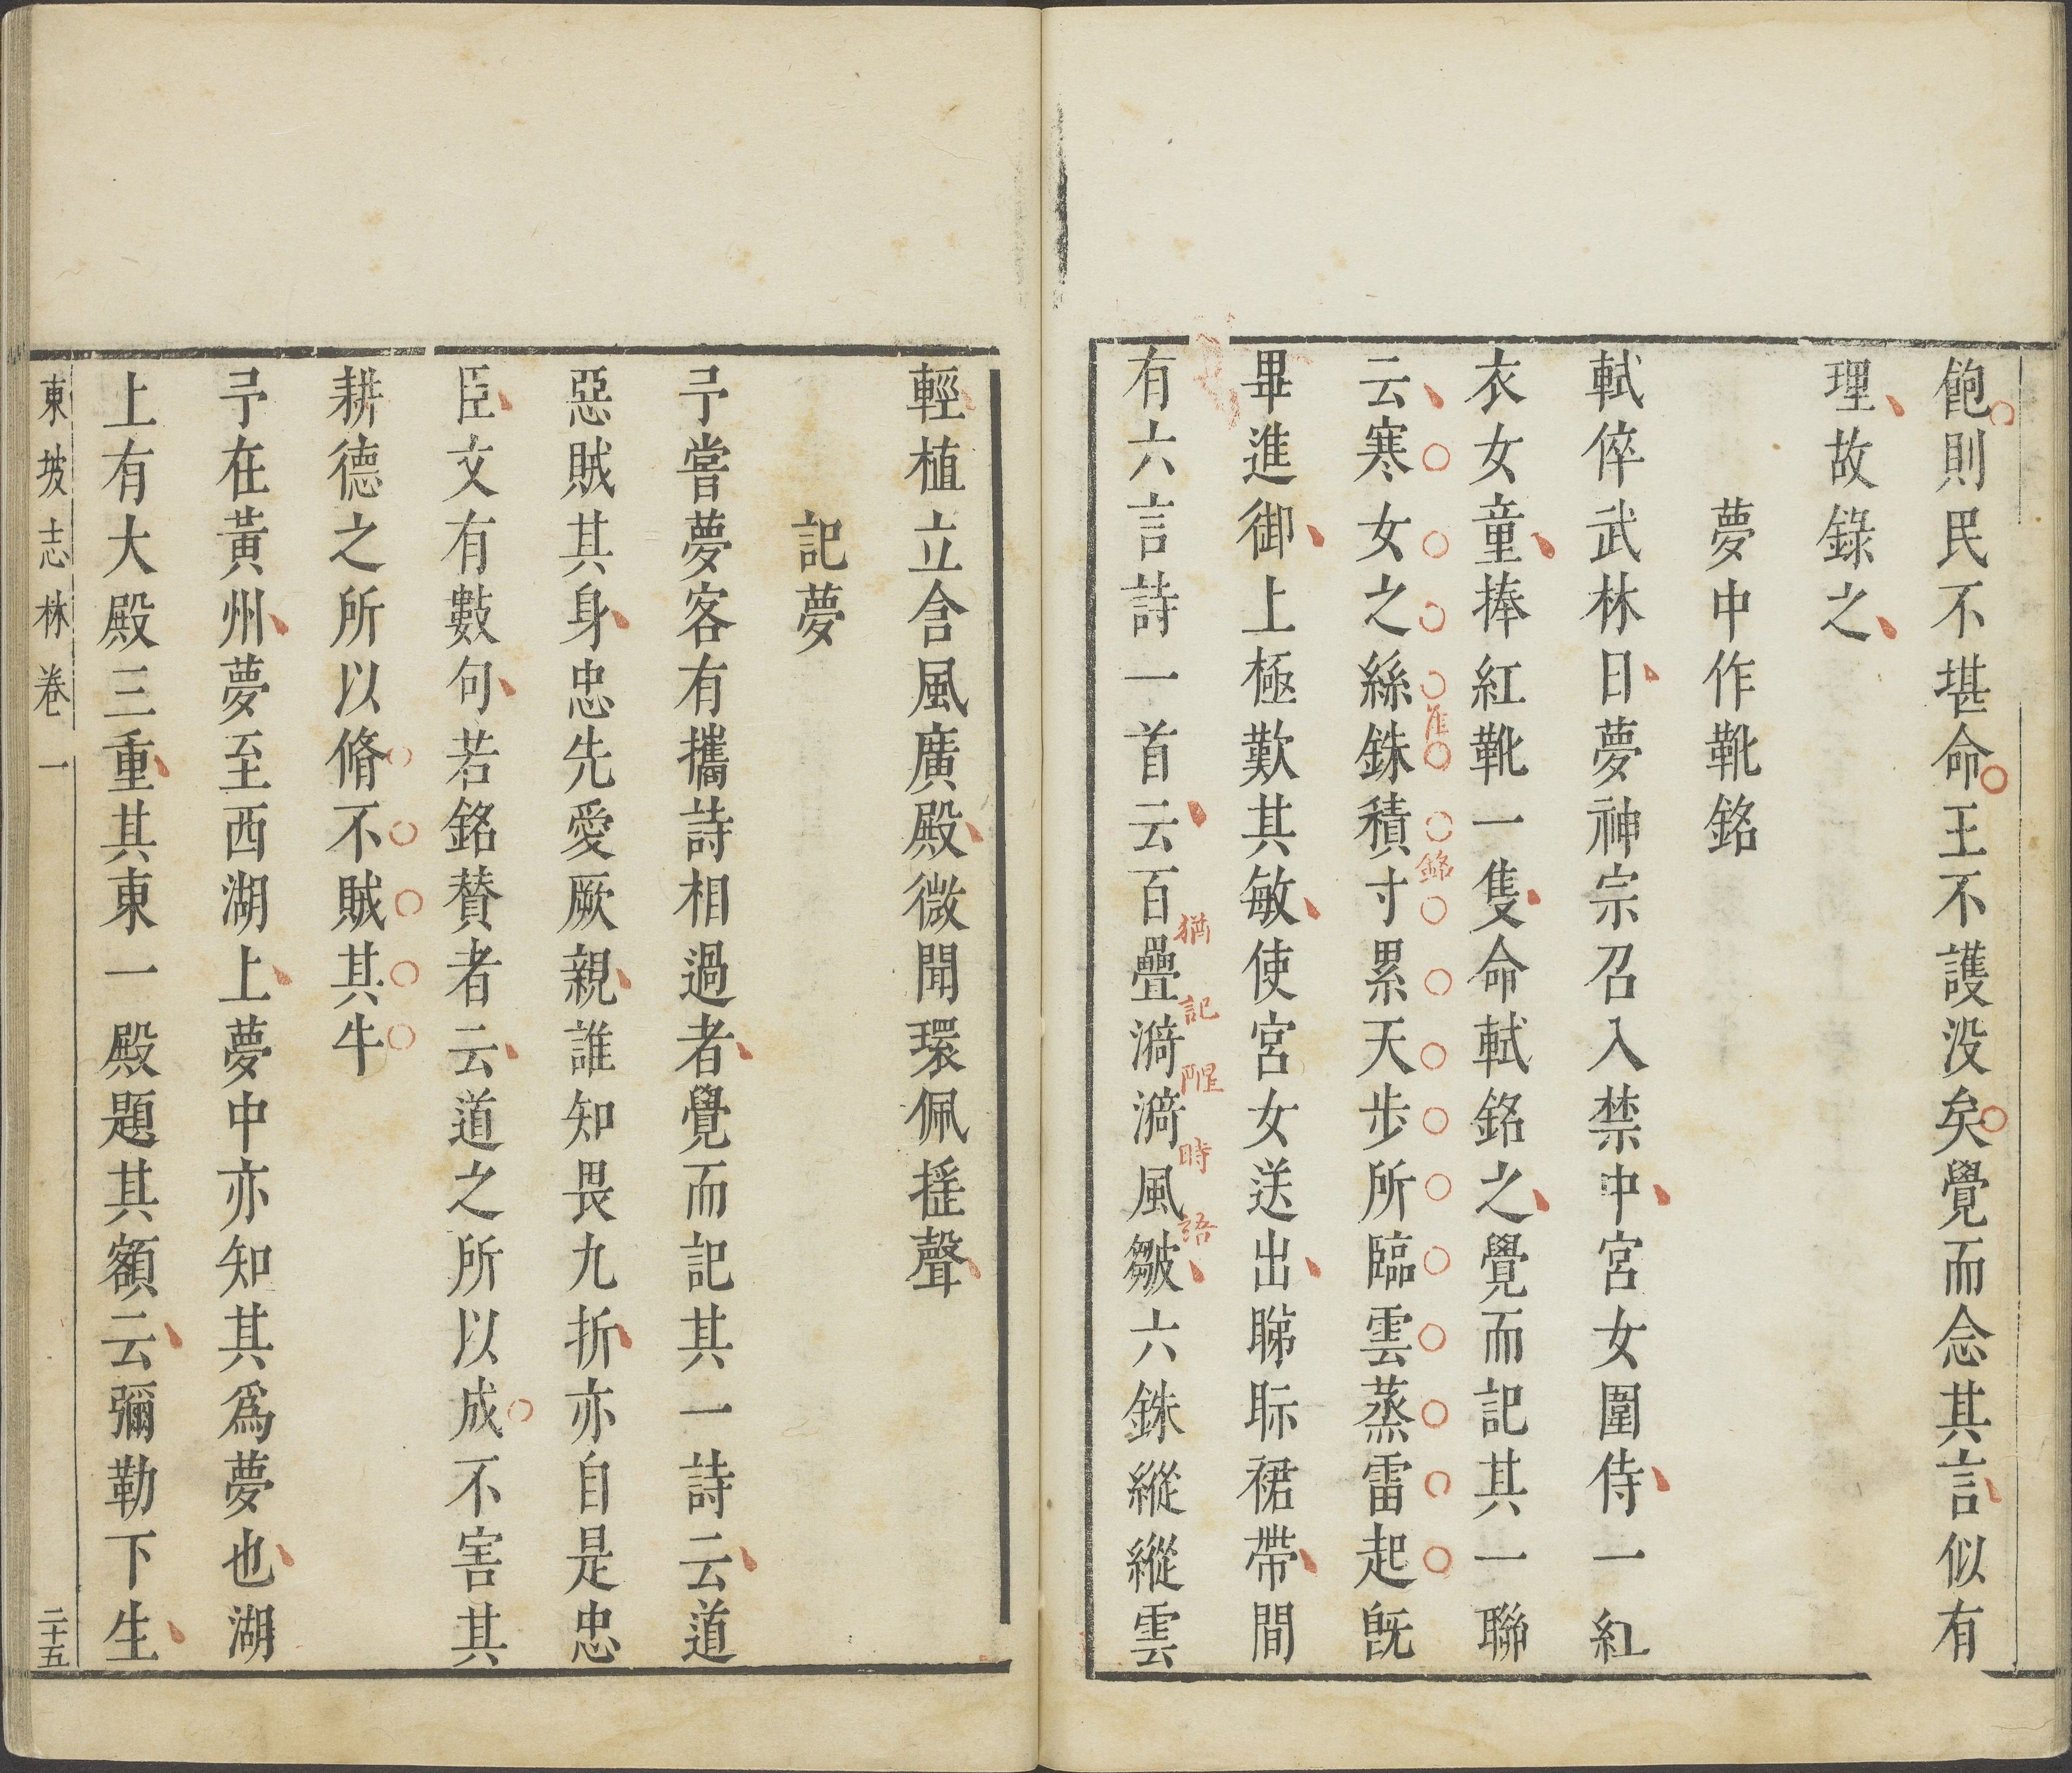 飽則民不堪命王不護没矣覺而念其言似有
理故錄之
夢中作靴銘
軾倅武林日夢神宗召入禁中宮女圍侍一紅
衣女童捧紅靴一隻命軾銘之覺而記其一聯
云寒女之絲銖積寸累天步所臨雲蒸雷起既
隹銘
畢進御上極歎其敏使宮女送出睇眎裙帶間
有六言詩一首云百疊漪漪風皺六銖縰縰雲
猶記醒時語
輕植立含風廣殿微聞環佩搖聲
記夢
予嘗夢客有攜詩相過者覺而記其一詩云道
惡賊其身忠先愛厥親誰知畏九折亦自是忠
臣文有數句若銘贊者云道之所以成不害其
耕德之所以脩不賊其牛
予在黃州夢至西湖上夢中亦知其爲夢也湖
上有大殿三重其東一殿題其額云彌勒下生
東坡志林卷一
二十五